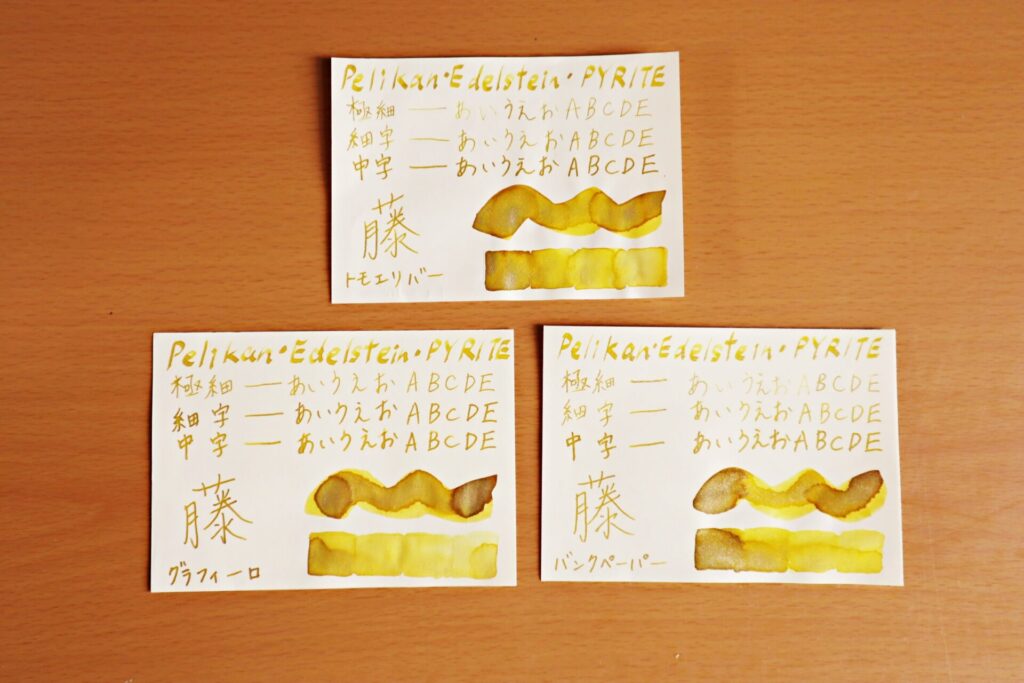 Pelikan・Edelstein・PYRITE
極細 ― あいうえお ABCDE
細字 ― あいうえお ABCDE
中字 ― あいうえお ABCDE
藤
トモエリバー
Pelikan・Edelstein・PYRITE
極細 ― あいうえお ABCDE
細字 ― あいうえお ABCDE
中字 ― あいうえお ABCDE
藤
グラフィーロ
Pelikan・Edelstein・PYRITE
極細 ― あいうえお ABCDE
細字 ― あいうえお ABCDE
中字 ― あいうえお ABCDE
藤
バンクペーパー